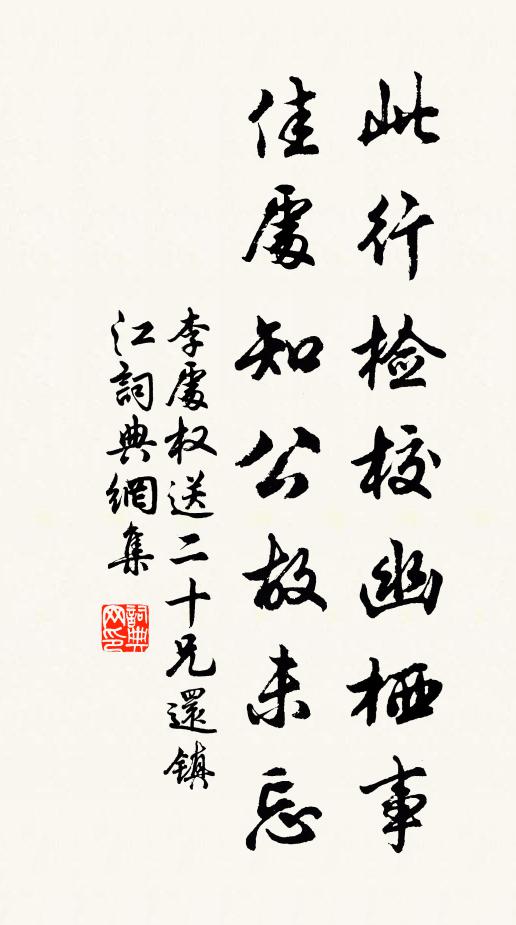 此行检校幽栖事
佳處知公故未忘
李處权送二十兄還镇
江詞典網集
詞典
网印